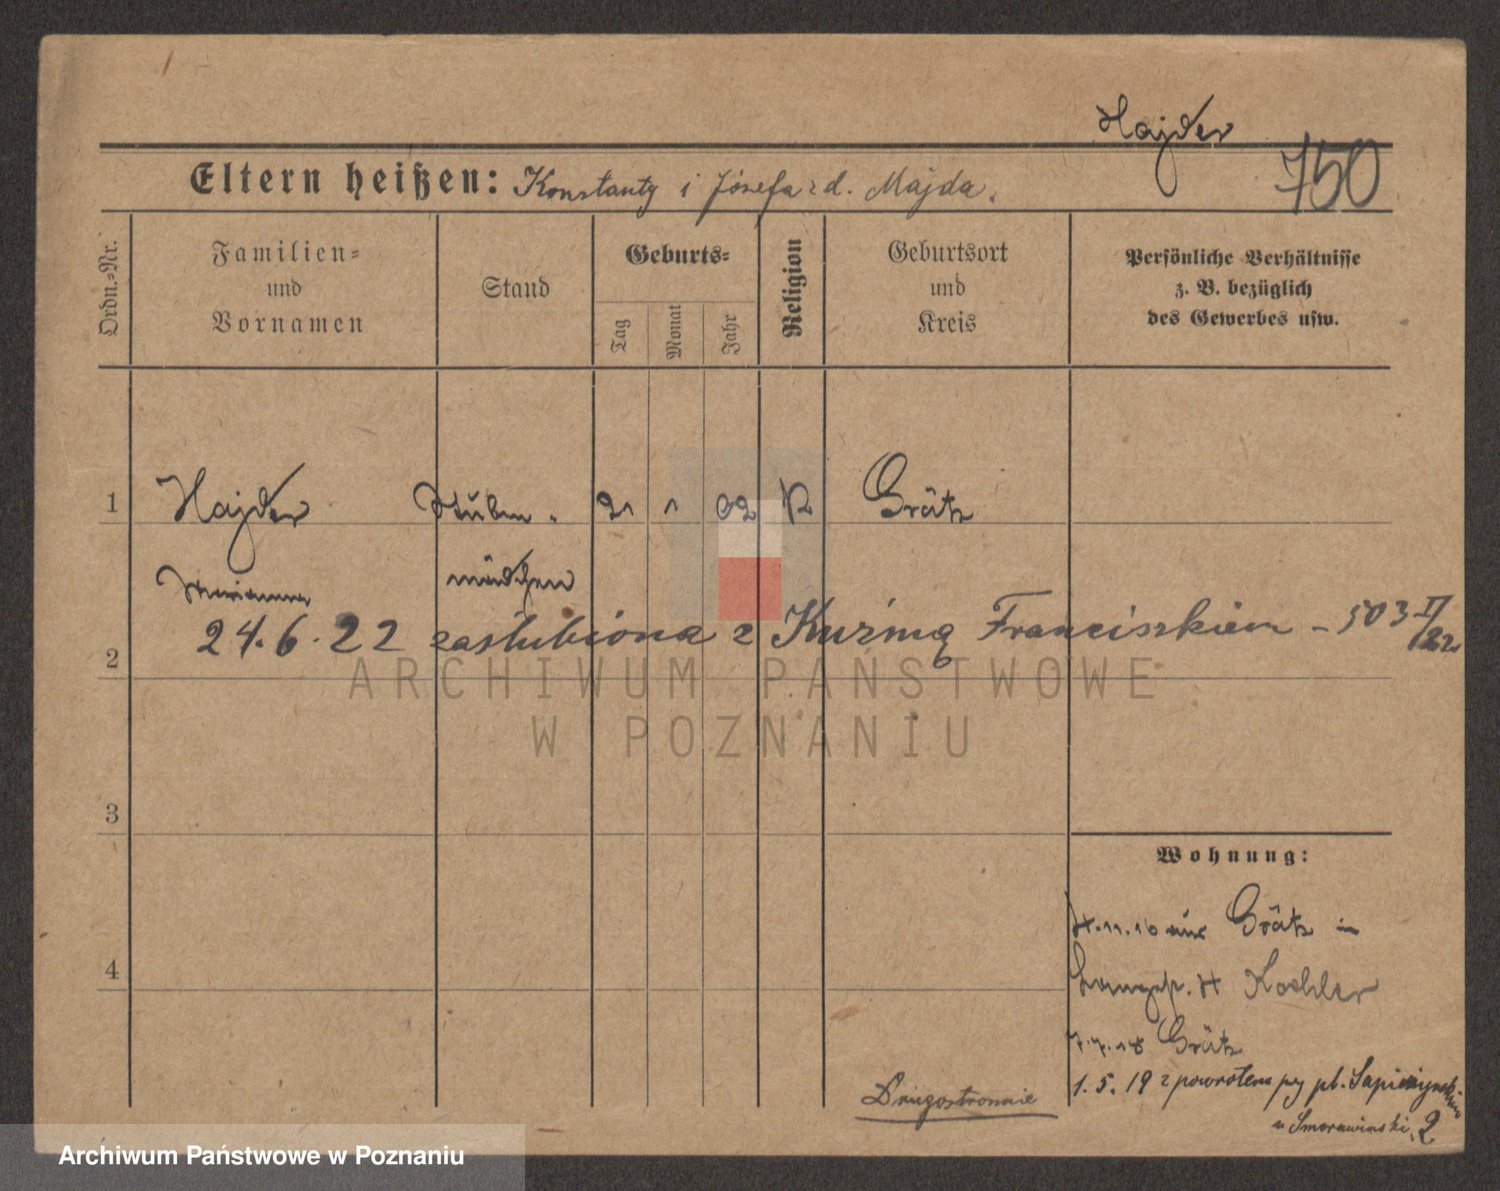 Hajder
Eltern heißen: Konstanty i Józefa z d. Majda.
750
Ordn.-Nr.
Familien-
und
Vornamen
Stand
Geburts-
Tag
Monat
Jahr
Religion
Geburtsort
und
Kreis
Persönliche Verhältnisse
z. B. bezüglich
des Gewerbes usw.
1 Hajder Stuben- 21 1 02 K Grätz
Marianna mädchen
24.6.22 zaślubiona z Kuźmą Franciszkiem - 503 II/22
2
ARCHIWUM PAŃSTWOWE
W POZNANIU
3
Wohnung:
4.11.16 aus Grätz in
4
Langestr. 4 Koehler
7.7.18 Grätz
1.5.19 z powrotem przy pl. Sapieżyńskim
u Smorawinski 2
Drugostronnie
Archiwum Państwowe w Poznaniu